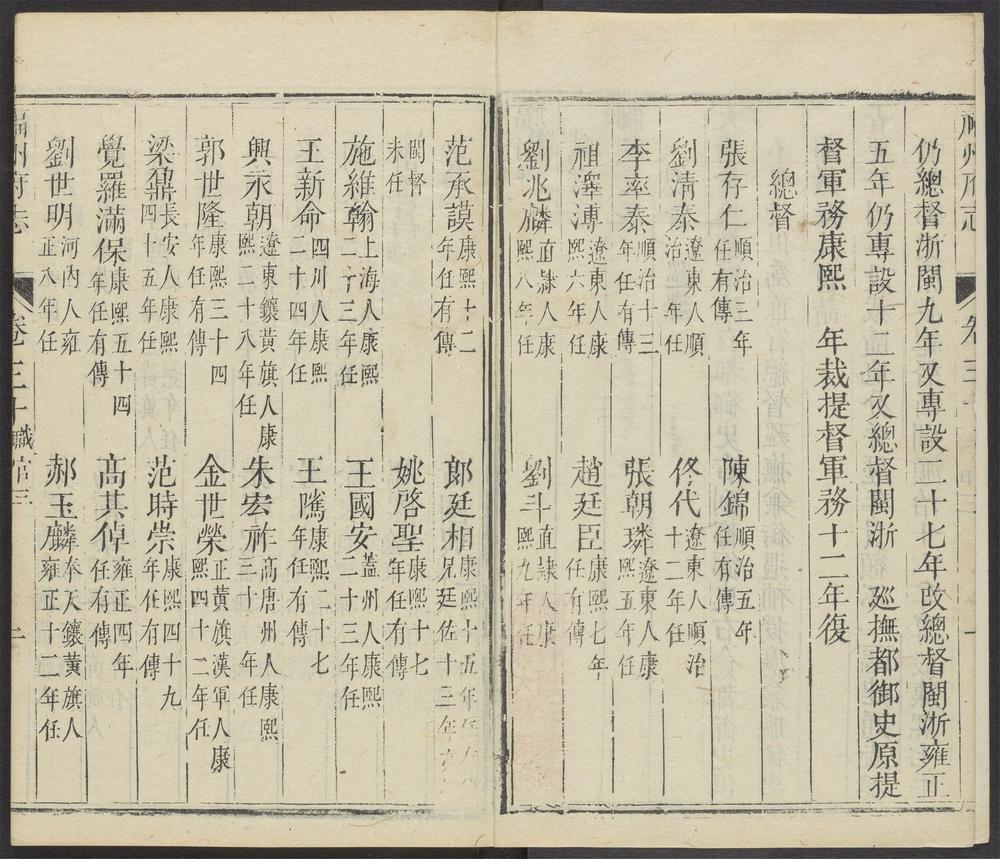 州府志
卷三十
仍總督浙閩九年又專設二十七年改總督閩浙雍正
五年仍專設十二年又總督閩浙 廵撫都御史原提
督軍務康熙 年裁提督軍務十二年復
總督
張存仁順治三年任有傳 陳錦順治五年任有傳
劉清泰遼東人順治 年任 佟代遼東人順治十二年任
李率泰順治十三年任有傳 張朝璘遼東人康熙五年任
祖澤溥遼東人康熙六年任 趙廷臣康熙七年任有傳
劉兆麟直隷人康熙八年任 劉斗直隷人康熙九年任
范承謨康熙十二年任有傳 郎廷相康熙十五年任 兄廷佐十三年
閩督未任 姚啓聖康熙十七年任有傳
施維翰上海人康熙二十三年任 王國安蓋州人康熙二十三年任
王新命四川人康熙二十四年任 王隲康熙二十七年任有傳
興永朝遼東鑲黃旗人康熙二十八年任 朱宏祚高唐州人康熙三十一年任
郭世隆康熙三十四年任有傳 金世榮正黃旗漢軍人康熙四十二年任
梁鼐長安人康熙四十五年任 范時崇康熙四十九年任有傳
覺羅滿保康熙五十四年任有傳 高其倬雍正四年任有傳
劉世明河內人雍正八年任 郝玉麟奉天鑲黃旗人雍正十二年任
福州府志
卷三十職官三
一